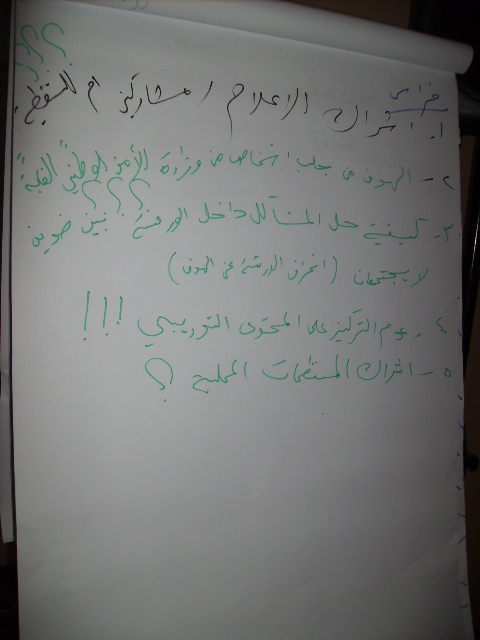 ؟؟؟
١. اشراك الاعلام / مشاركين ام للتغطية
٢ - الهدف من جلب اشخاص من وزارة الأمن الوطني
؟؟؟
٣- كيفية حل المشاكل داخل الورشة بين ضدين
لا يجتمعان (انحراف الورشة عن الهدف)
٤ - عدم التركيز على المحتوى التدريبي !!!
٥ - اشراك المنظمات المحلية ؟